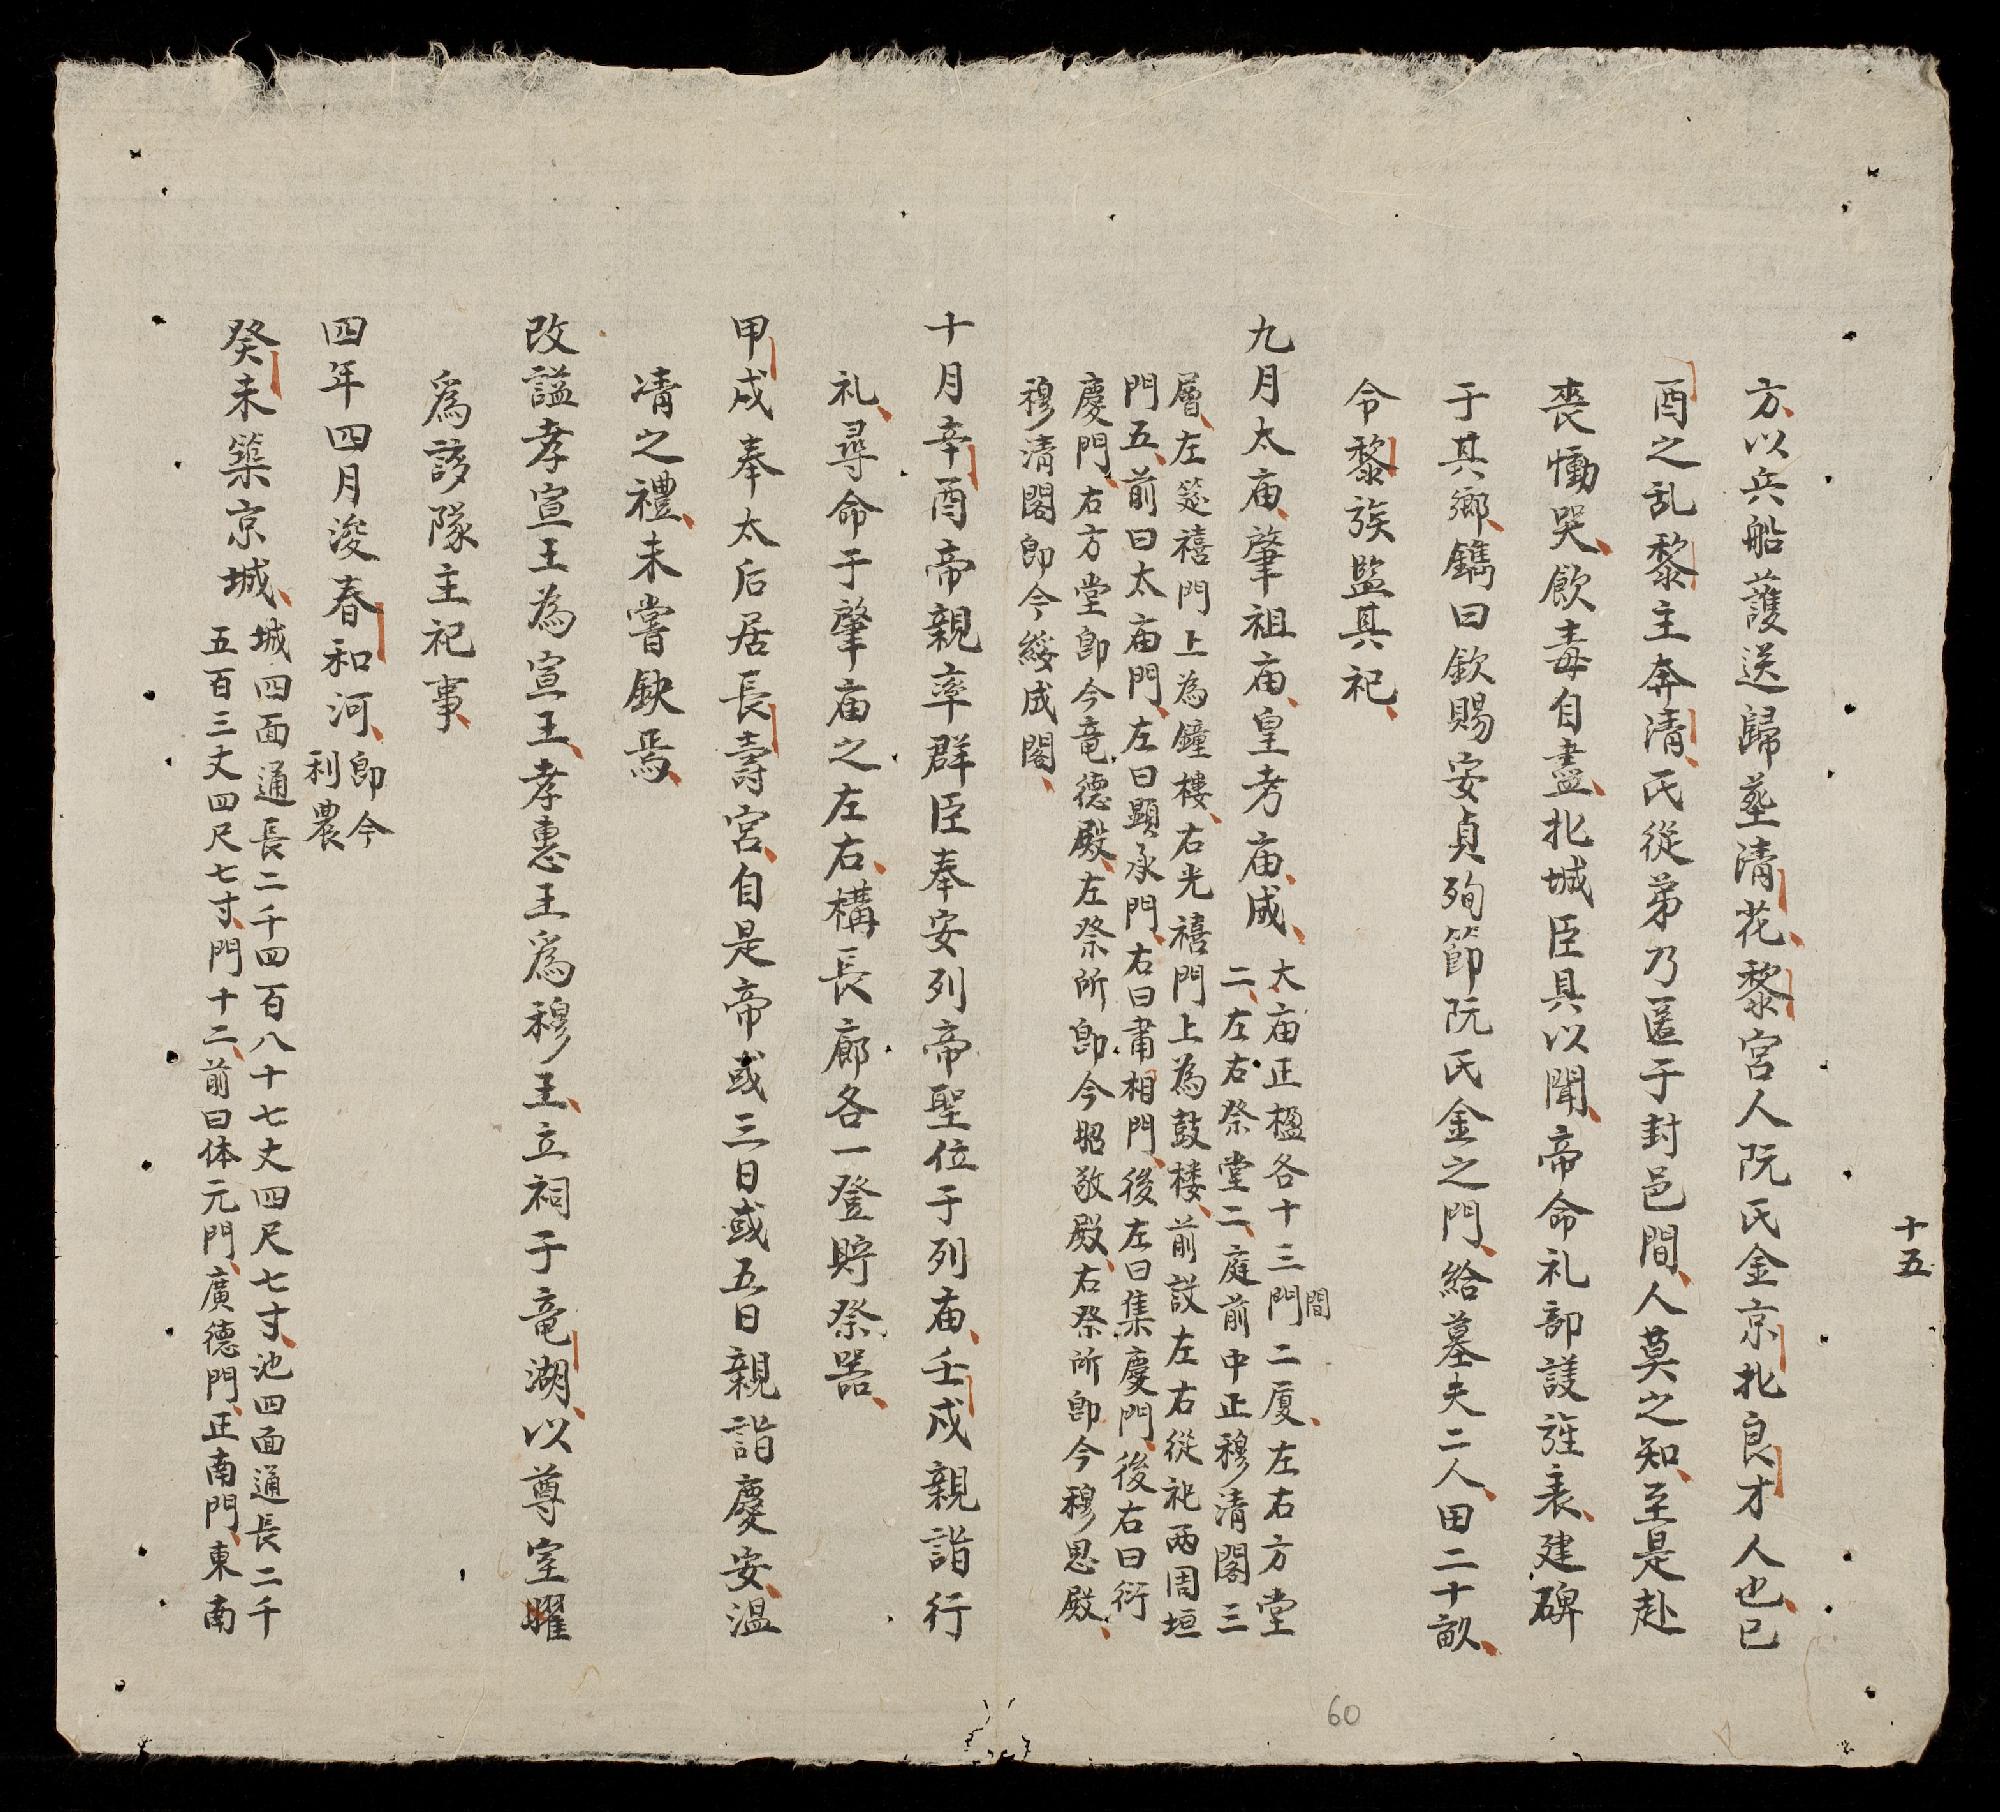 十五
方以兵船護送歸塟清花黎宮人阮氏金京北良才人也己
酉之乱黎主奔清氏從弟乃匿于封邑間人莫之知至是赴
喪慟哭飲毒自盡北城臣具以聞帝命礼部議旌表建碑
于其鄉鐫曰欽賜安貞殉節阮氏金之門給墓夫二人田二十畝
令黎族監其祀
九月太庙肇祖庙皇考庙成
大庙正楹各十三門間二厦左右方堂
二左右祭堂二庭前中正穆清閣三
層左筵禧門上為鐘樓右光禧門上為鼓楼前設左右從祀兩周垣
門五前曰太庙門左曰顕承門右曰肅相門後左曰集慶門後右曰衍
慶門右方堂即今竜德殿左祭所即今昭敬殿右祭所即今穆思殿
穆清閣即今綏成閣
十月辛酉帝親率群臣奉安列帝聖位于列庙壬戌親詣行
礼尋命于肇庙之左右構長廊各一登貯祭器
甲戌奉太后居長壽宮自是帝或三日或五日親詣慶安温
凊之禮未嘗缺焉
改謚孝宣王為宣王孝惠王爲穆王立祠于竜湖以尊室曜
爲該隊主祀事
四年四月浚春和河
即今
利農
癸未築京城
城四面通長二千四百八十七丈四尺七寸池四面通長二千
五百三丈四尺七寸門十二前曰体元門廣德門正南門東南
60